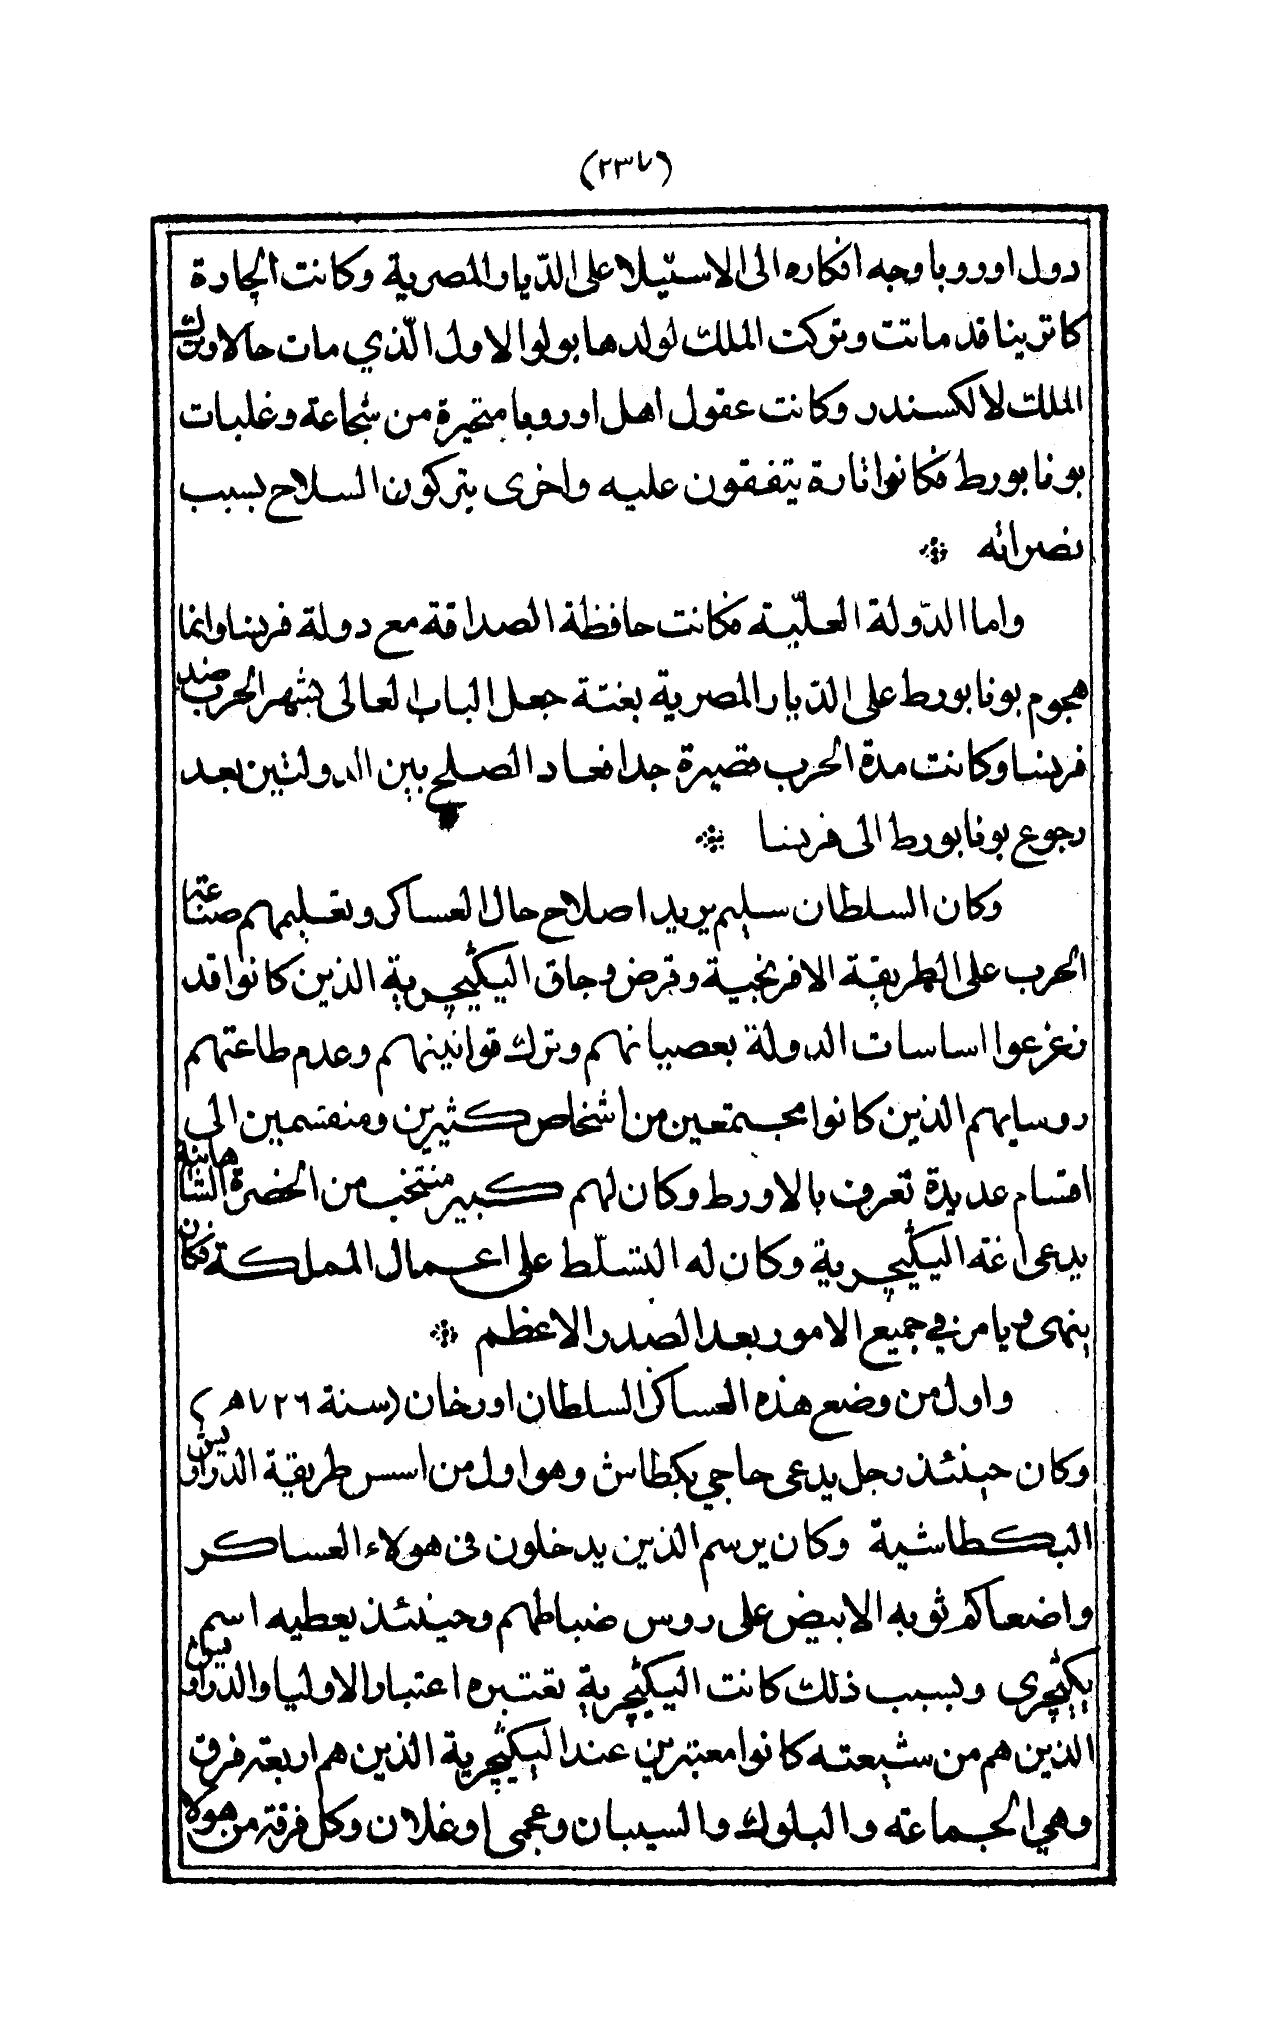 (٢٣٧)
دول اوروبا وجه افكاره الى الاستيلا على الدّيار المصرية وكانت الجادة
كاترينا قد ماتت وتركت الملك لولدها بولو الاول الّذي مات حالا وترك
الملك لالكسندر وكانت عقول اهل اوروبا متحيرة من شجاعة وغلبات
بونابورط فكانوا تارة يتفقون عليه واخرى يتركون السلاح بسبب
نصراته
واما الدّولة العليّة فكانت حافظة الصداقة مع دولة فرنسا وانما
هجوم بونابورط على الدّيار المصرية بغتة جعل الباب العالى يشهر الحرب ضد
فرنسا وكانت مدة الحرب قصيرة جدا فعاد الصلح بين الدولتين بعد
رجوع بونابورط الى فرنسا
وكان السلطان سليم يريد اصلاح حال العساكر وتعليمهم صناعة
الحرب على الطريقة الافرنجية وقرض وجاق اليكيچرية الذين كانوا قد
زعزعوا اساسات الدولة بعصيانهم وترك قوانينهم وعدم طاعتهم
روسايهم الذين كانوا مجتمعين من اشخاص كثيرين ومنقسمين الى
اقسام عديدة تعرف بالاورط وكان لهم كبير منتخب من الحضرة الشاهانية
يدعى اغة اليكيچرية وكان له التسلّط على اعمال المملكة فكان
ينهى ويامر في جميع الامور بعد الصدر الاعظم
واول من وضع هذه العساكر السلطان اورخان (سنة ٧٢٦ هـ)
وكان حينئذ رجل يدعى حاجي بكطاش وهو اول من اسس طريقة الدراويش
البكطاشية وكان يرسم الذين يدخلون فى هولاء العساكر
واضعا كم ثوبه الابيض على روس ضباطهم وحينئذ يعطيه اسم
يكيچرى وبسبب ذلك كانت اليكيچرية تعتبره اعتبار الاوليا والدراويش
الذين هم من شيعته كانوا معتبرين عند اليكيچرية الذين هم اربعة فرق
وهي الجماعة والبلوك والسيبان وعجمى اوغلان وكل فرقة من هولا